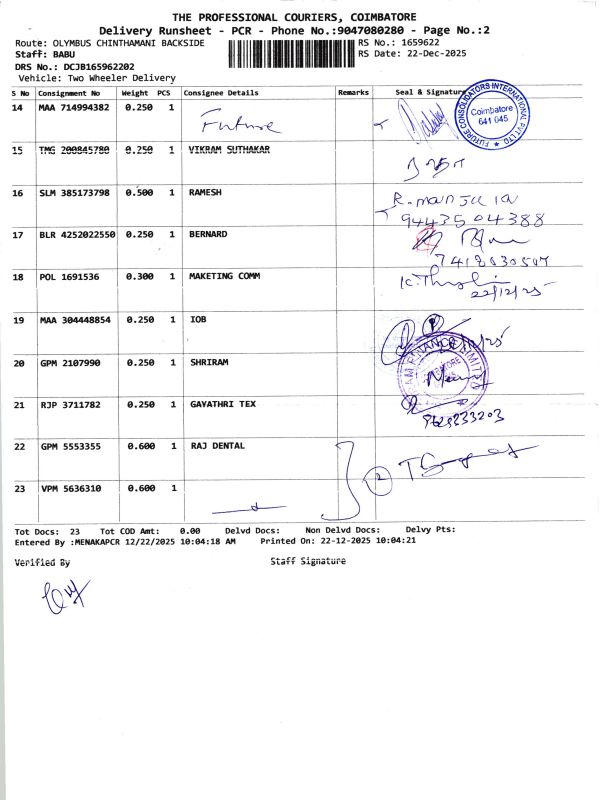 THE PROFESSIONAL COURIERS, COIMBATORE
Delivery Runsheet - PCR - Phone No.:9047080280 - Page No.:2
Route: OLYMBUS CHINTHAMANI BACKSIDE RS No.: 1659622
Staff: BABU RS Date: 22-Dec-2025
DRS No.: DCJB165962202
Vehicle: Two Wheeler Delivery
S No Consignment No Weight PCS Consignee Details Remarks Seal & Signature
14 MAA 714994382 0.250 1 Future
FUTURE CONSOLIDATORS INTERNATIONAL PVT LTD
Coimbatore
641 045
15 TMG 200845780 0.250 1 VIKRAM SUTHAKAR
16 SLM 385173798 0.500 1 RAMESH R. manjula
9443504388
17 BLR 4252022550 0.250 1 BERNARD
18 POL 1691536 0.300 1 MAKETING COMM
22/12/25
19 MAA 304448854 0.250 1 IOB
20 GPM 2107990 0.250 1 SHRIRAM
21 RJP 3711782 0.250 1 GAYATHRI TEX
9629233203
22 GPM 5553355 0.600 1 RAJ DENTAL
2
23 VPM 5636310 0.600 1
Tot Docs: 23 Tot COD Amt: 0.00 Delvd Docs: Non Delvd Docs: Delvy Pts:
Entered By :MENAKAPCR 12/22/2025 10:04:18 AM Printed On: 22-12-2025 10:04:21
Verified By Staff Signature